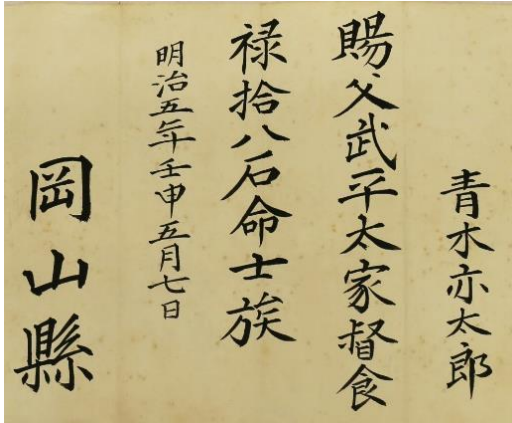 青木亦太郎
賜父武平太家督食
禄拾八石命士族
明治五年壬申五月七日
岡山縣